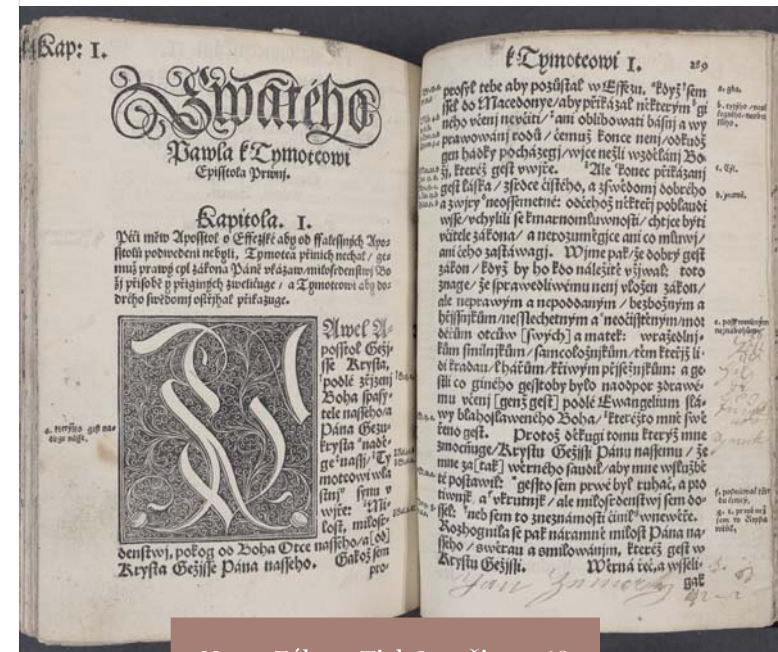 Kap: I.
Swatého
Pawla k Tymoteowi
Episstola Prwnj.
Kapitola. I.
Péči měw Apossstol o Effezské aby od ffalessných Apo-
sstolů podwedeni nebyli, Tymotea při nich nechal / ge-
muž prawý cyl zákona Páně vkázaw / milosrdenstwj Bo
žj při sobě y při giných zweličuge / a Tymoteowi aby do-
drého swědomj ostřjhal přikazuge.
PAwel A-
posstol Gežj-
sse Krysta,
podlé zřjzenj
Boha spasy-
tele nasseho / a
Pána Gezu-
krysta naděge
nassj / Ty
moteowi wla
stnj synu v
wjře: Mi-
lost, milosr-
denstwj, pokog od Boha Otce nasseho / a [od]
Krysta Gežjsse Pána nasseho. Gakož sem
pro-
k Tymoteowi I. 289
prosyl tebe aby pozůstal w Effezu, když sem
ssel do Macedonye / aby přikázal některým gi
ného včenj nevčiti / ani oblibowati básnj a wy
prawowánj rodů / čemuž konce nenj / odkudž
gen hádky pocházegj / wjce nežli wzdělánj Bo
žj, kteréž gest v wjře. Ale konec přikázanj
gest láska / z srdce čistého, a z swědomj dobrého
a z wjry neossemetné: od čehož někteřj pobladi
wsse / vchýlili se k marnomluwnosti / chtjce býti
včitele zákona / a nerozumějce ani co mluwj /
ani čeho zastáwagj. Wjme pak / že dobrý gest
zákon / když by ho kdo náležitě vžjwal: toto
znage / že sprawedliwému nenj vložen zákon /
ale neprawým a nepoddaným / bezbožným a
hřjssnjkům / nesslechetným a neočisstěným / mor
děřům otcůw [swých] a matek: wražedlnj-
kům smilnjkům / samcoložnjkům / těm kteřjž li-
di kradau / lhářům / křiwým přjsežnjkům: a ge-
stli co giného gesstoby bylo naodpor zdrawé-
mu včenj [genž gest] podlé Ewangelium slá-
wy blahoslaweného Boha / kteréžto mně swě
řeno gest. Protož děkugi tomu kterýž mne
zmocňuge / Krystu Gežjssi Pánu nassemu / že
mne za [tak] wěrného saudil / aby mne w službě
té postawil: gessto sem prwé byl ruhač, a pro
tiwnjk, a vkrutnjk / ale milosrdenstwj sem do-
ssel: neb sem to z neznámosti činil w newěře.
Rozhognila se pak náramně milost Pána na-
sseho / s wěrau a smilowánjm, kteréž gest w
Krystu Gežjssi. Wěrná řeč, a wsseli-
gak